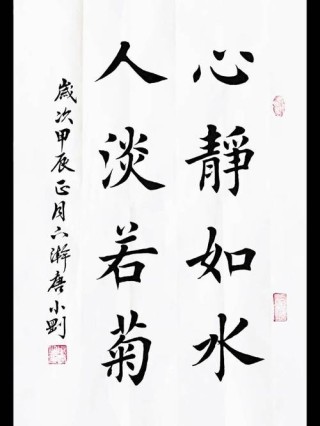 心靜如水
人淡若菊
歲次甲辰正月下澣唐小剛